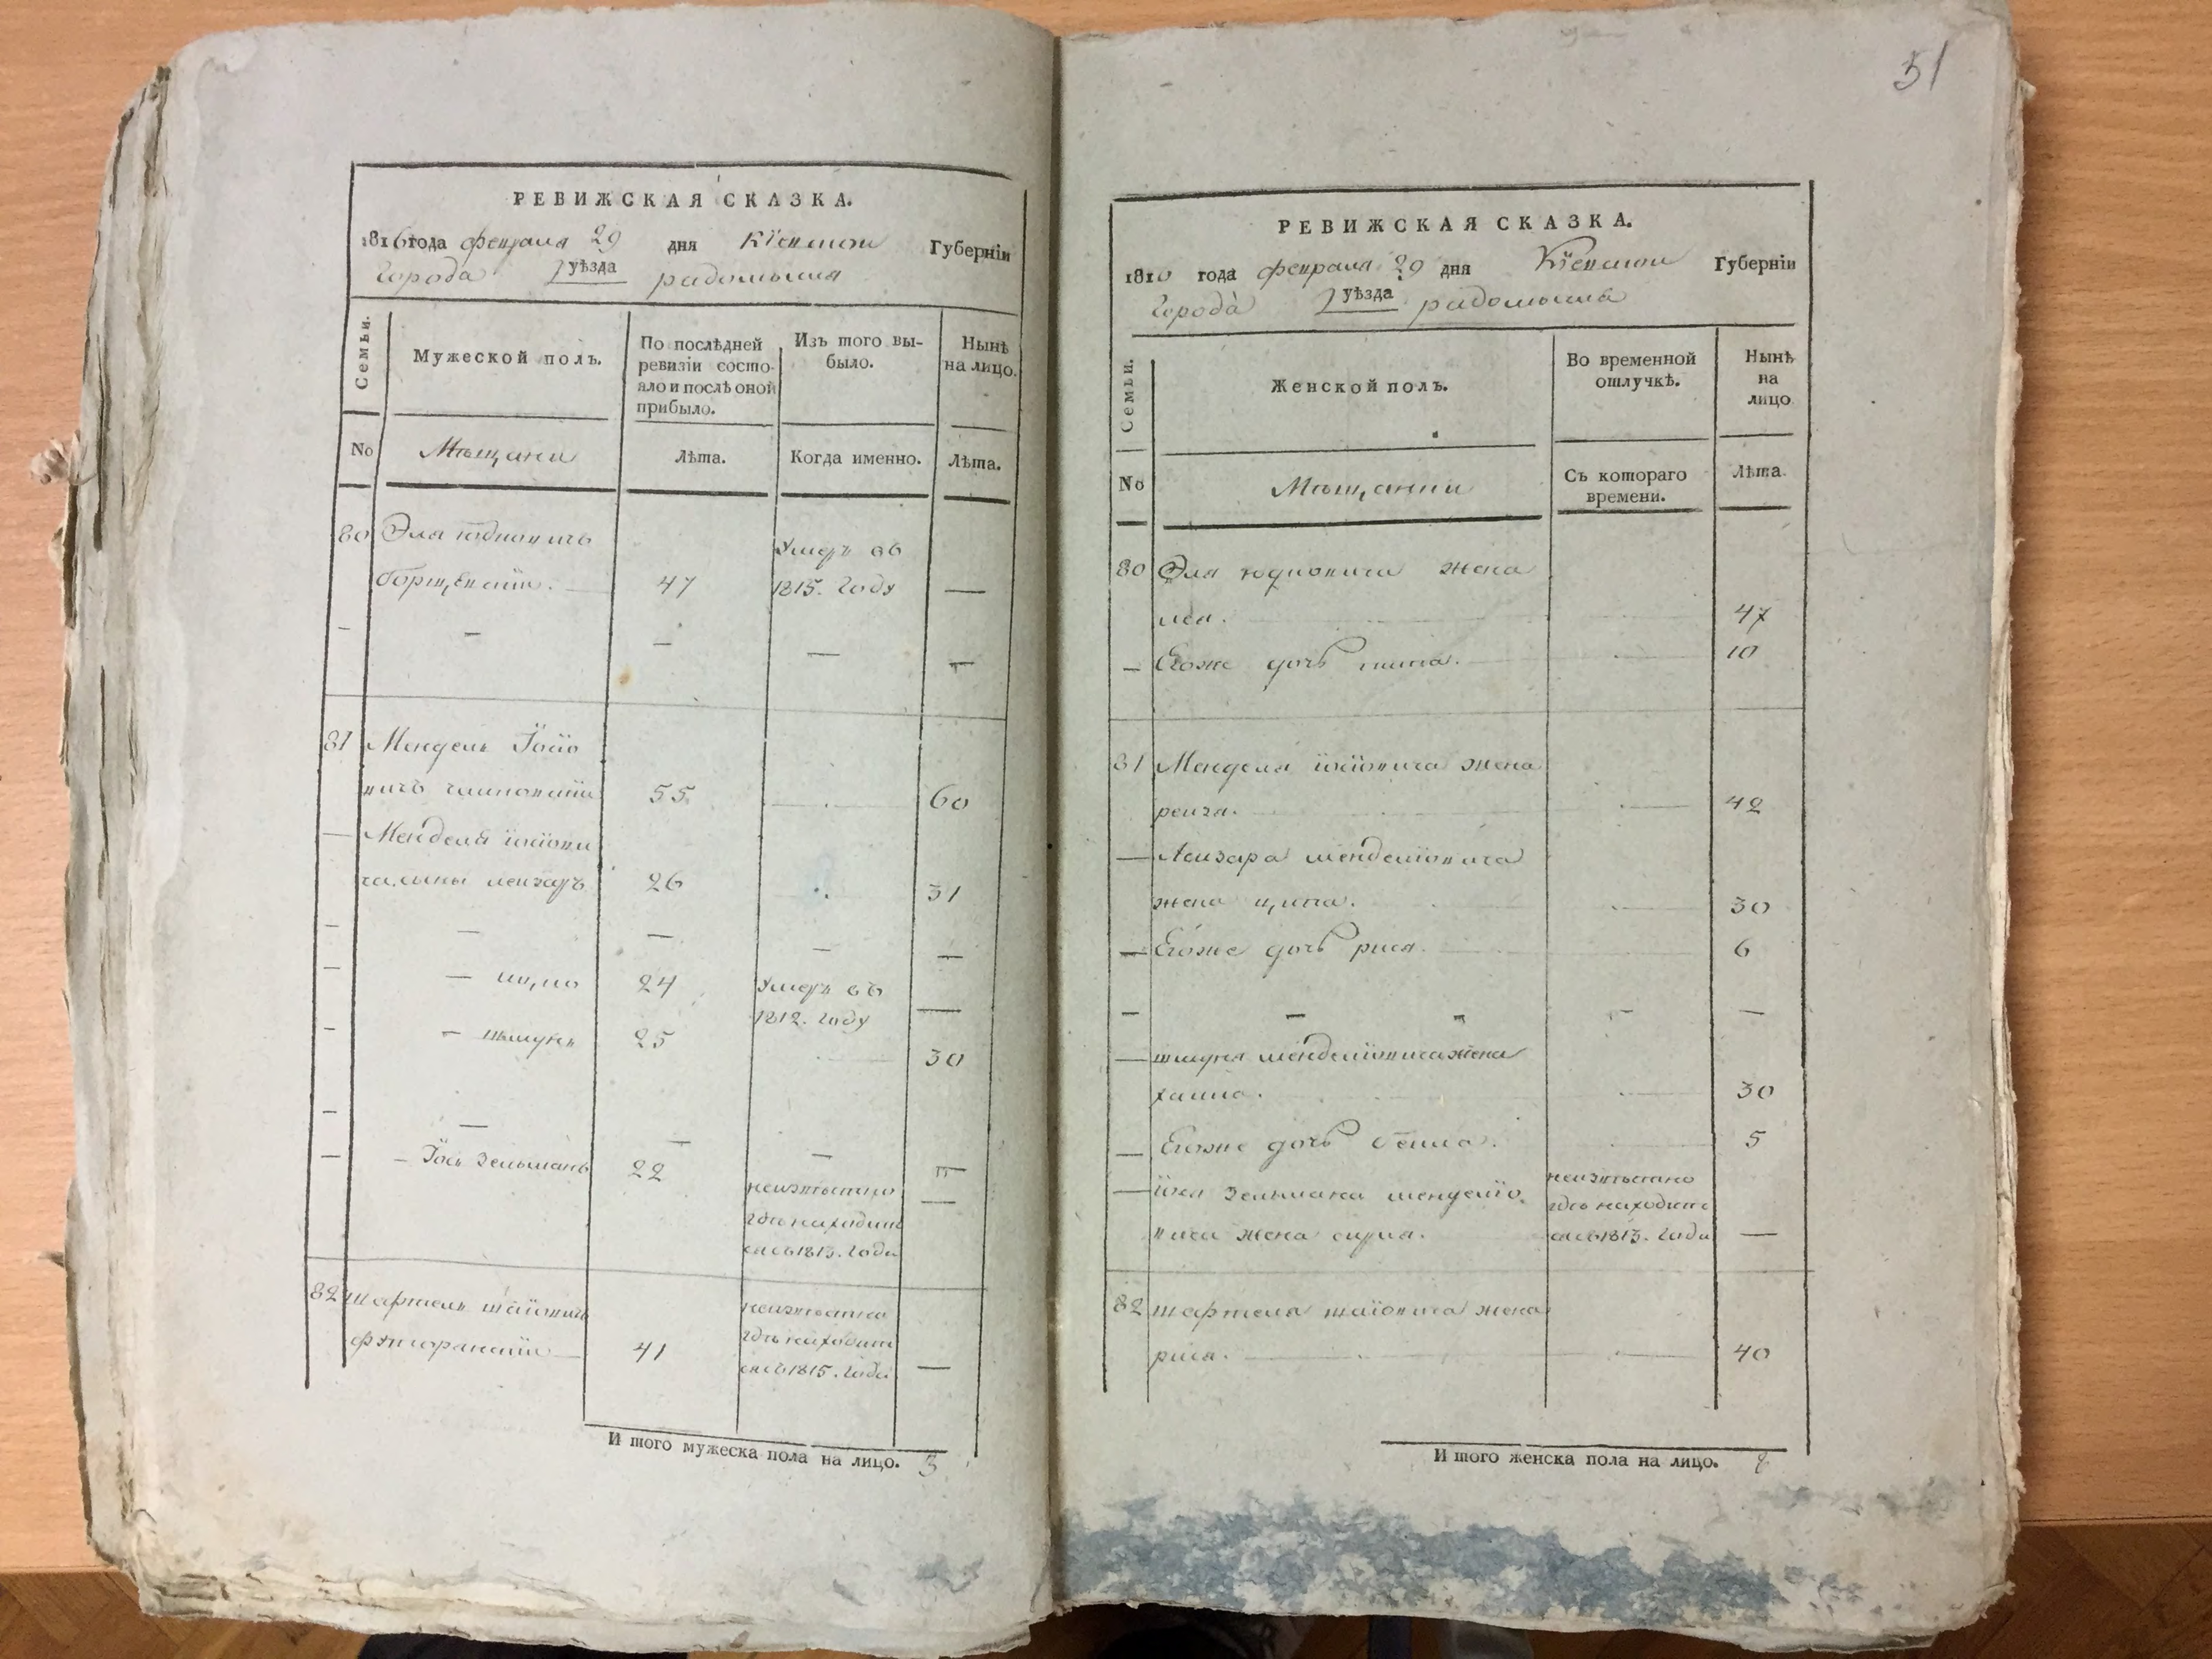 51
РЕВИЖСКАЯ СКАЗКА.
1816 года февраля 29 дня Кіевской Губерніи
Города уѣзда радомысля
Семьи.
Мужеской полъ.
По послѣдней ревизіи состояло и послѣ оной прибыло.
Изъ того выбыло.
Нынѣ на лицо.
No
Мѣщани
Лѣта.
Когда именно.
Лѣта.
80 Эля юдковичъ Умеръ въ
47 1815. году —
81 Мендель
55 60
Менделя
лейзаръ 26 31
— 24 Умеръ въ
1812. году —
— шмуль 25 30
— Іось Зельманъ 22 —
неизвѣстно
гдѣ находит
ся съ 1813. года
82
неизвѣстно
гдѣ находит
41 ся съ 1815. года —
И того мужеска пола на лицо. 3
РЕВИЖСКАЯ СКАЗКА.
1816 года февраля 29 дня Кіевской Губерніи
Города уѣзда радомысла
Семьи.
Женской полъ.
Во временной отлучкѣ.
Нынѣ на лицо
No
Мѣщанки
Съ котораго времени.
Лѣта.
80 Эля юдковича жена
лея. 47
— Егоже дочь 10
81 Менделя жена
рейза. 42
— Лейзара менделіовича
жена ципа. 30
— Егоже дочь рися. 6
— шмуля менделіовича жена
хайка. 30
— Егоже дочь бейла. 5
— Іося Зельмана менделіо
вича жена сурка. —
неизвѣстно
гдѣ находитс
ся съ 1813. года
82 жена
рися. 40
И того женска пола на лицо. 8